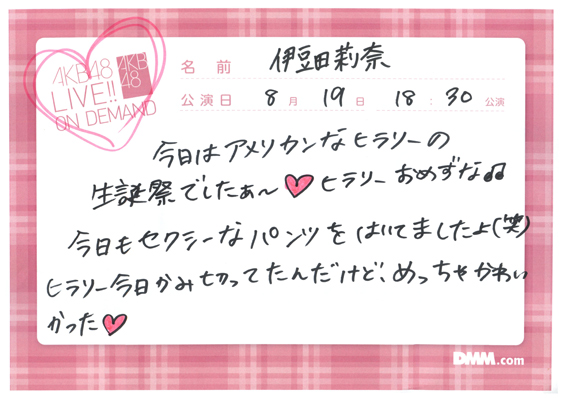 AKB48
LIVE!!
ON DEMAND
AKB
48
名前 伊豆田莉奈
公演日 8月 19日 18:30 公演
今日はアメリカンなヒラリーの
生誕祭でしたぁ〜♥ ヒラリーおめずな♫
今日もセクシーなパンツをはいてましたよ(笑)
ヒラリー今日かみ切ってたんだけど、めっちゃかわい
かった♥
DMM.com